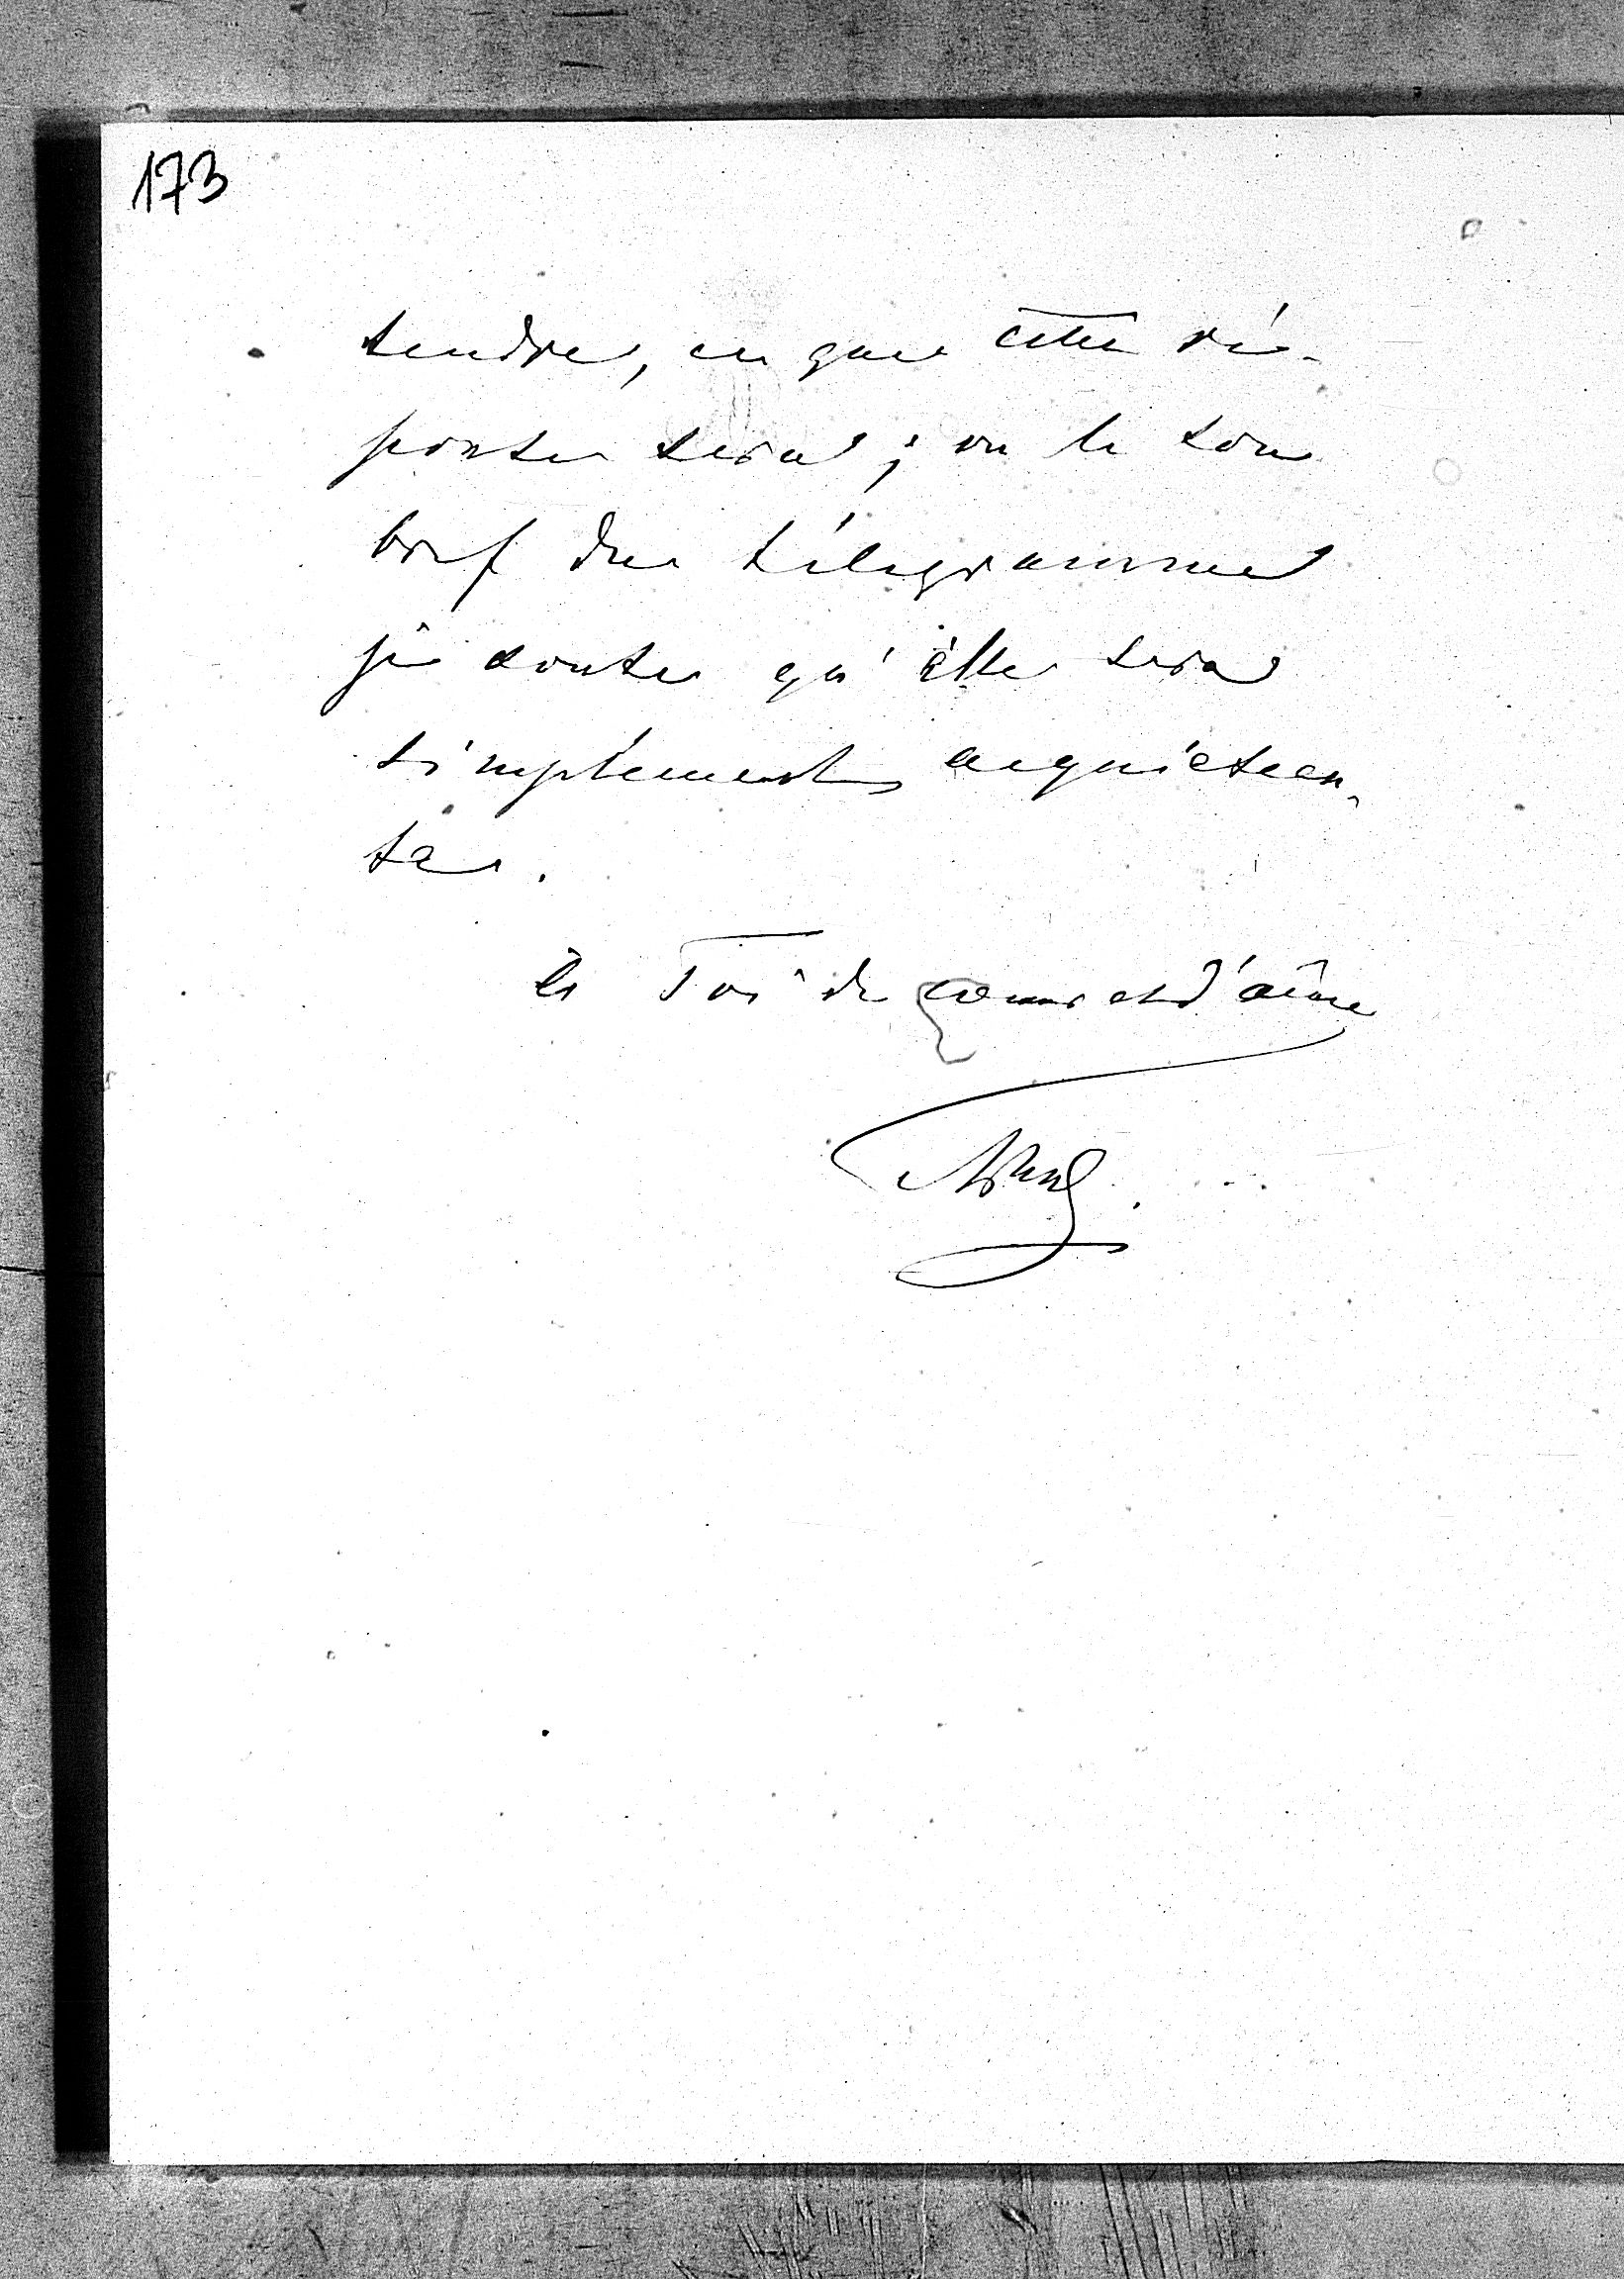 173
tendre, ce que cette ré-
ponse sera; vu le ton
bref du télégramme
je doute qu'elle sera
simplement acquiescen-
te.
à Toi de cœur et d'âme